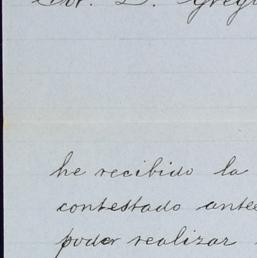 Sor. D. Grego
he recibido la
contestado ante
poder realizar